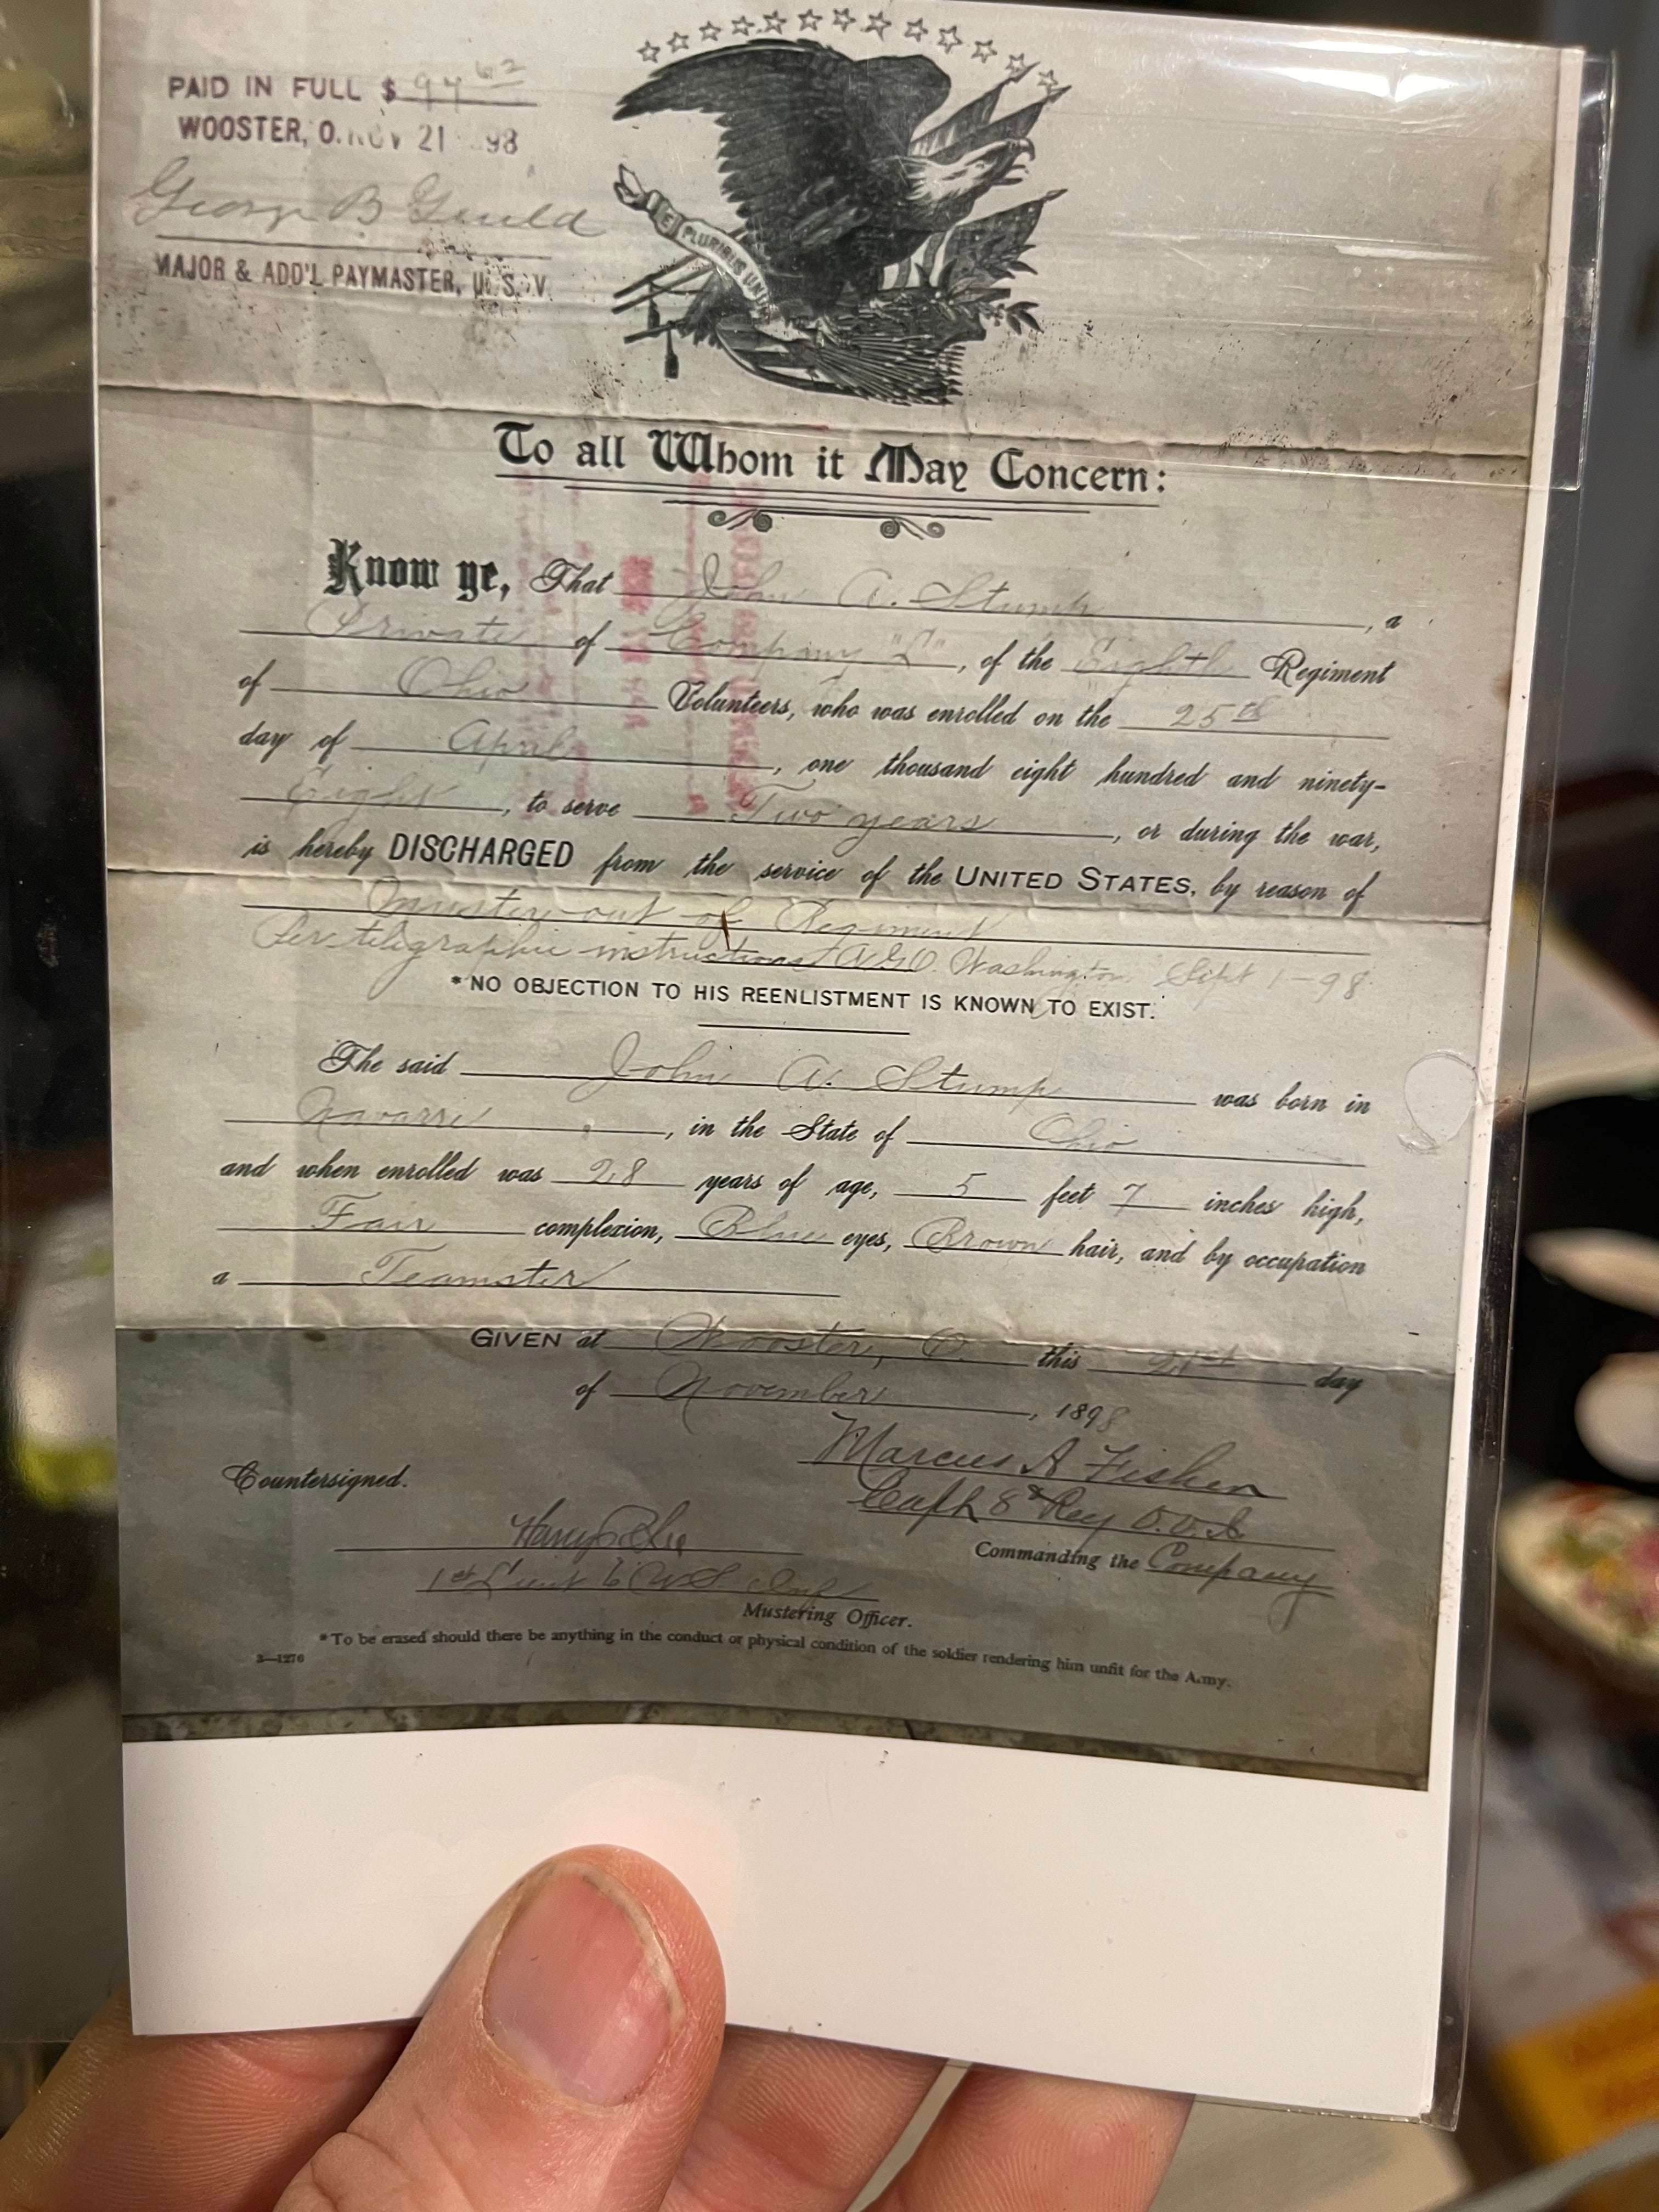 PAID IN FULL $ 94 62
WOOSTER, O. NOV 21 98
George B Guild
MAJOR & ADD'L PAYMASTER, U. S. V.
E PLURIBUS UNUM
To all Whom it May Concern:
Know ye, That John A. Stump, a
Private of Company "L", of the Eighth Regiment
of Ohio Volunteers, who was enrolled on the 25th
day of April, one thousand eight hundred and ninety-
Eight, to serve Two years, or during the war,
is hereby DISCHARGED from the service of the UNITED STATES, by reason of
Muster-out of Regiment
Per telegraphic instructions A.G.O. Washington, Sept 1-98
*NO OBJECTION TO HIS REENLISTMENT IS KNOWN TO EXIST.
The said John A. Stump was born in
Navarre, in the State of Ohio
and when enrolled was 28 years of age, 5 feet 7 inches high,
Fair complexion, Blue eyes, Brown hair, and by occupation
a Teamster
GIVEN at Wooster, O. this 21st day
of November, 1898
Marcus A Fisher
Countersigned.
Capt 8th Reg O.V.I.
Commanding the Company
1st Lieut 6 U.S. Inf
Mustering Officer.
*To be erased should there be anything in the conduct or physical condition of the soldier rendering him unfit for the Army.
3—1276